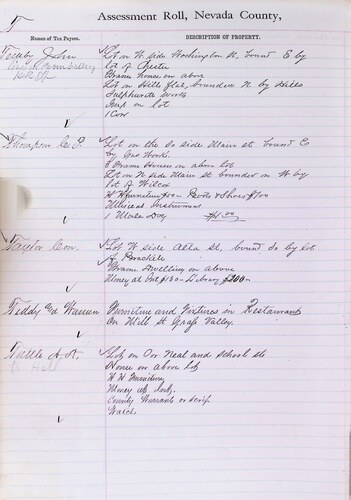 T
Assessment Roll, Nevada County,
Names of Tax Payers.
DESCRIPTION OF PROPERTY.
John
Lot on W side Washington St, bound E by
Lot of Chester
Frame house on above
Lot on Hills flat, bounded N by Hills
Sulphuret Works
Imp on lot
1 Cow
Thompson
Lot on the So side Main St, bound E
by Gas Works
Frame Houses on above lot
Lot on N side Main St bounded on W by
lot of Wilcox
Musical Instrument
1 Male Dog $1.00
Taylor Con.
Lot W side Alta St, bound So by lot
Frame Dwelling on above
Money at Int $130- Library $200-
Teddy Warren
Furniture and Fixtures in Restaurant
On Mill St Grass Valley.
Tuttle A. R.
Lot on Cor Neal and School sts
House on above lot
H H Furniture
Money at
County Warrants or Scrip
Watch